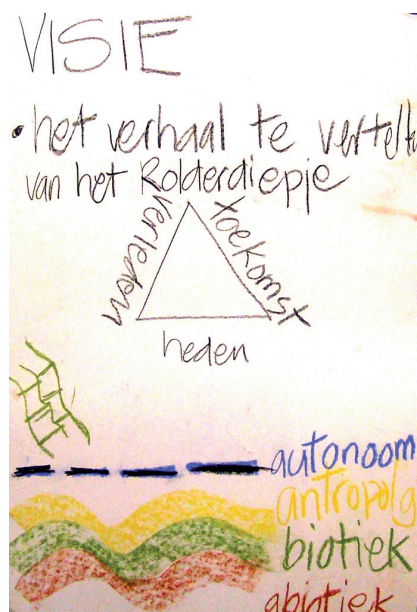 VISIE
• het verhaal te vertelle
van het Rolderdiepje
verleden
toekomst
heden
autonoom
antropolg
biotiek
abiotiek